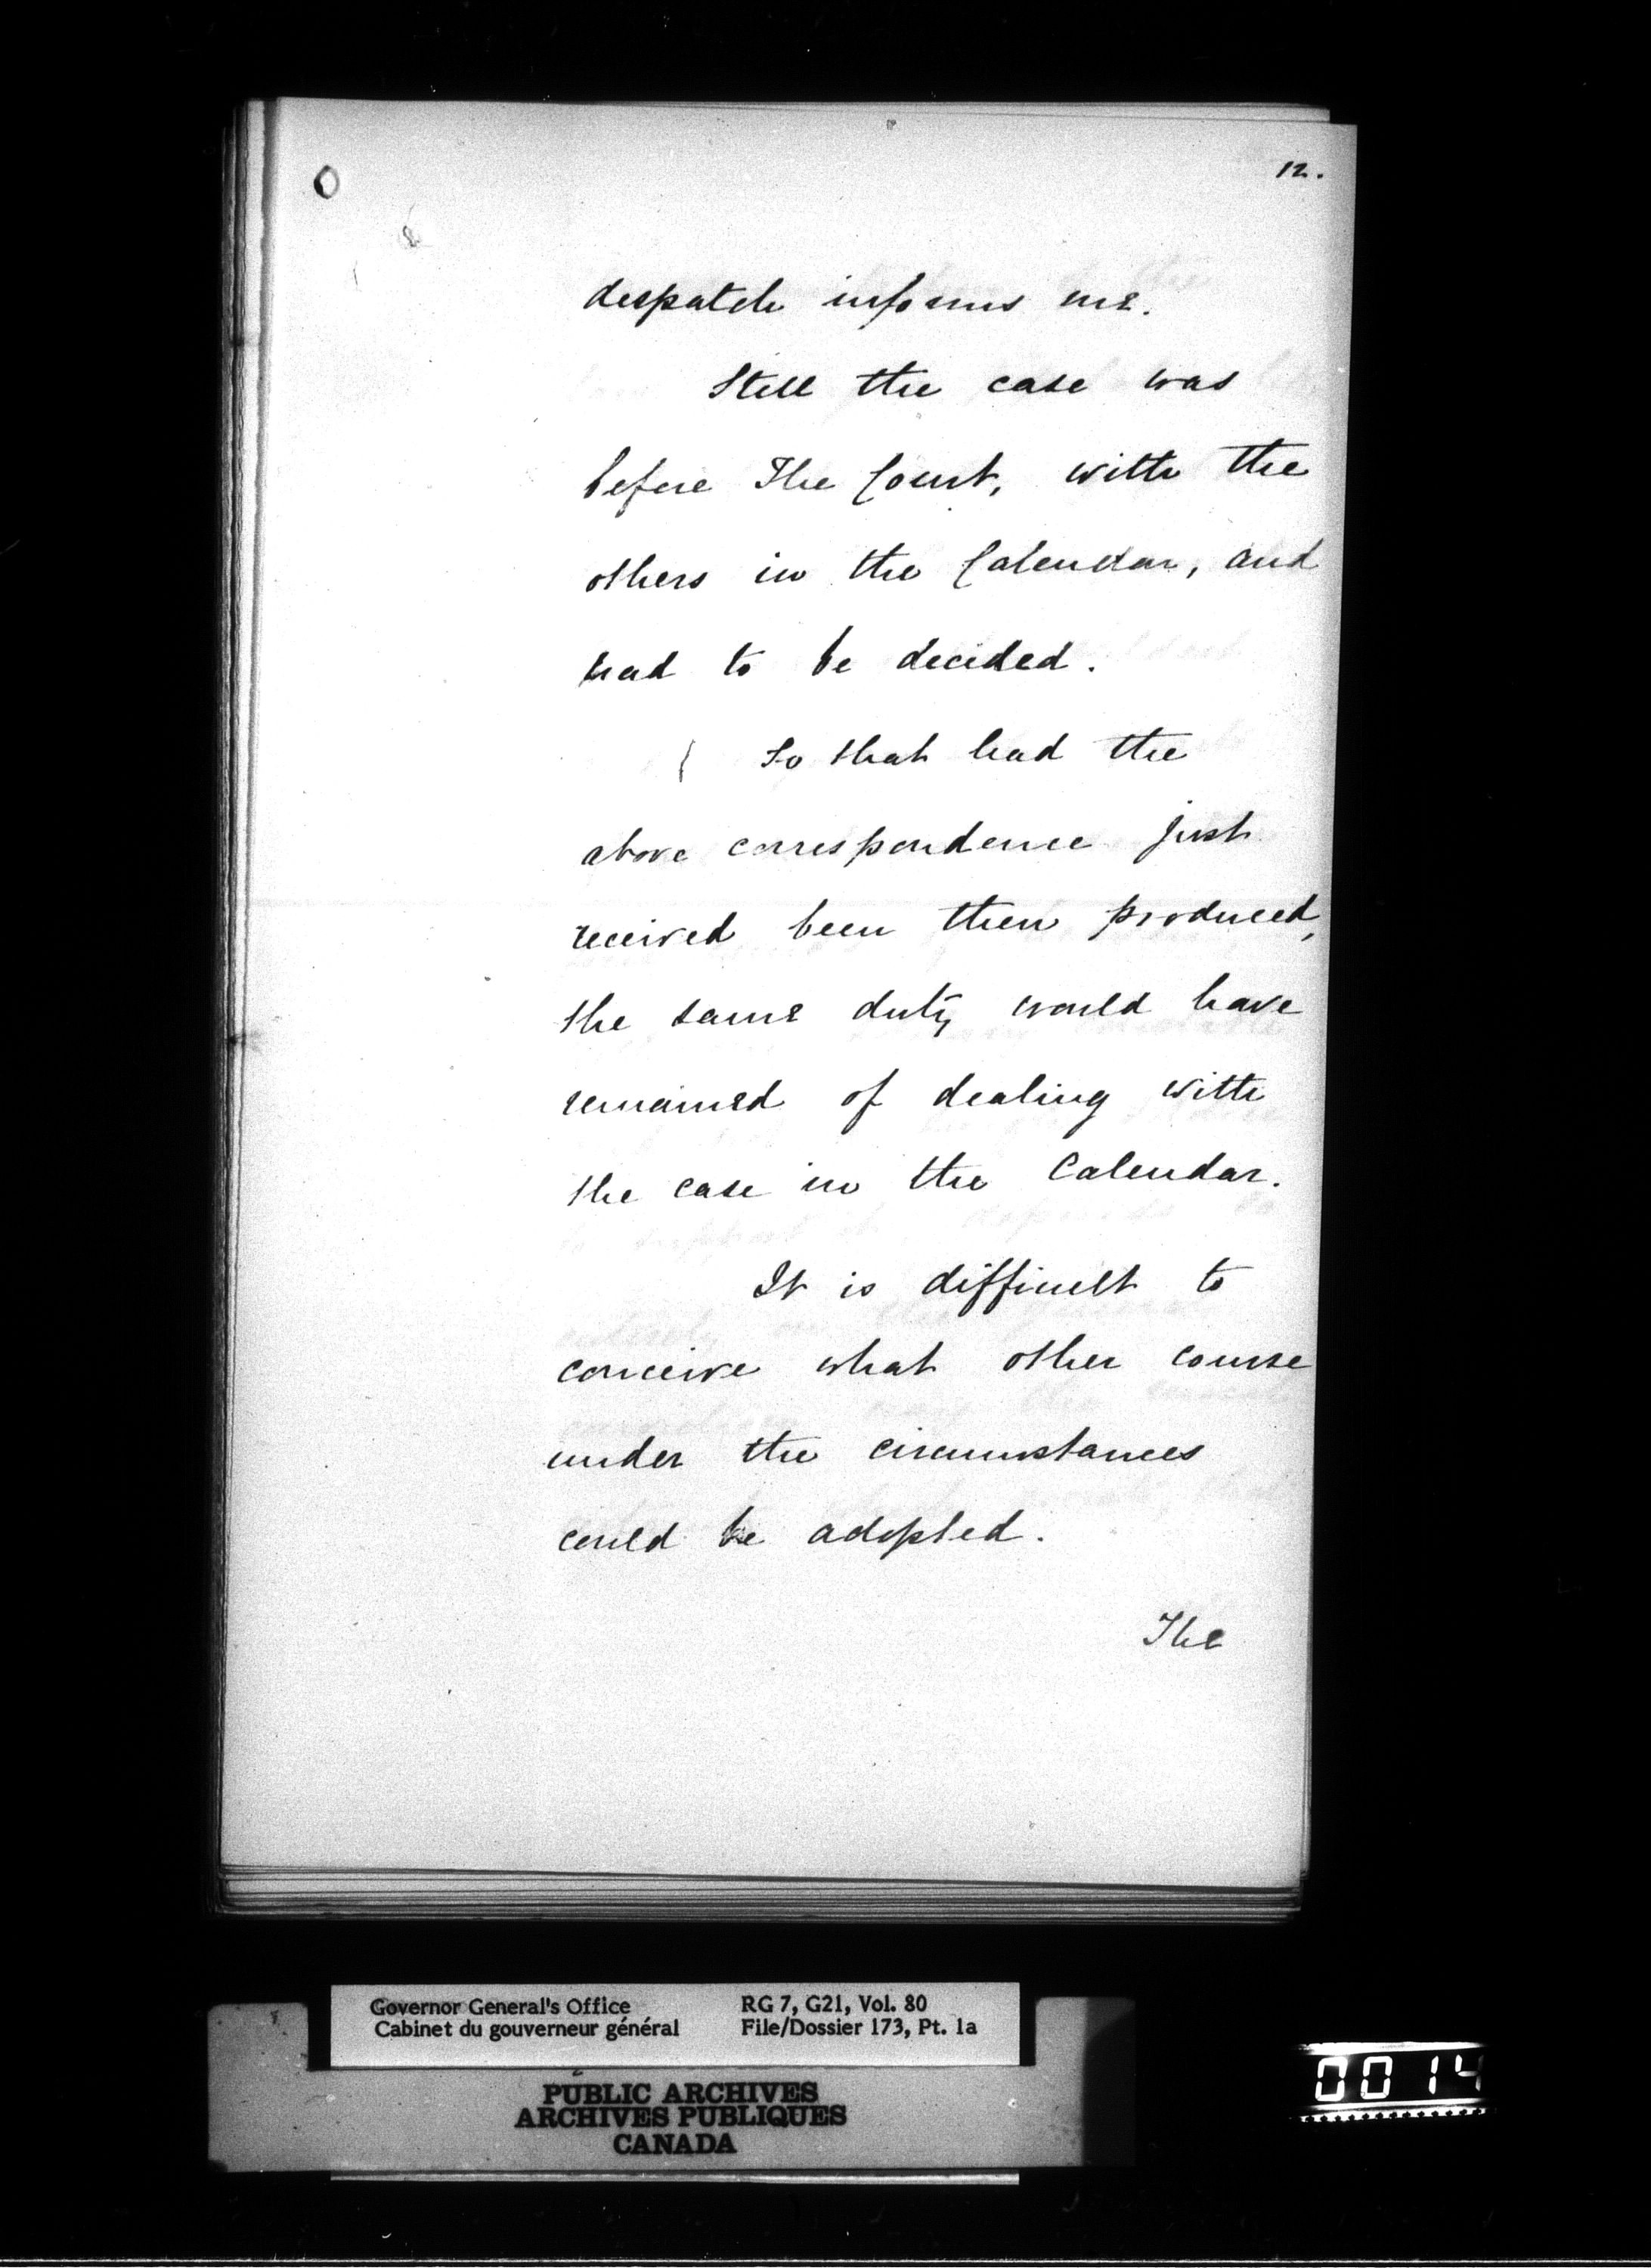 12.
despatch informs me.
Still the case was
before The Court, with the
others in the Calendar, and
had to be decided.
So that had the
above correspondence just
received been then produced,
the same duty would have
remained of dealing with
the case in the Calendar.
It is difficult to
conceive what other course
under the circumstances
could be adopted.
The
Governor General's Office RG 7, G21, Vol. 80
Cabinet du gouverneur général File/Dossier 173, Pt. 1a
PUBLIC ARCHIVES
ARCHIVES PUBLIQUES
CANADA
0014